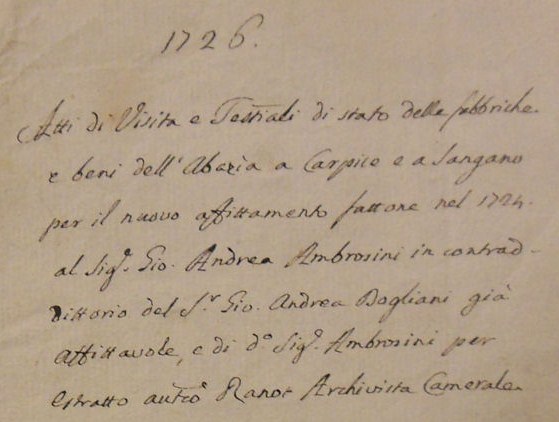 1726.
Atti di Visita e Testiali di stato delle fabbriche
e beni dell'Abazia a Carpice e a Sangano
per il nuovo affittamento fattone nel 1724.
al Sig.r Gio. Andrea Ambrosini in contrad-
dittorio del S.r Gio. Andrea Bogliani già
affittavole, e di d.o Sig.r Ambrosini per
estratto autco Ranot Archivista Camerale